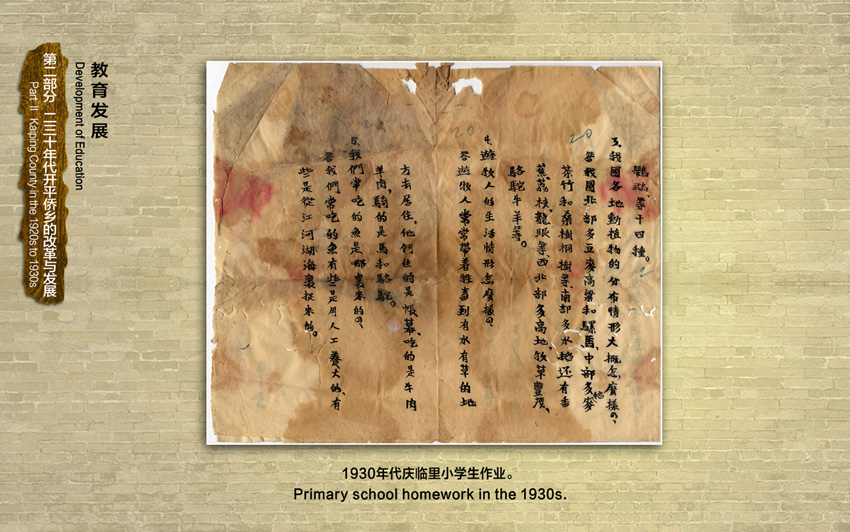 教育发展
Development of Education
第二部分 二三十年代开平侨乡的改革与发展
Part II Kaiping County in the 1920s to 1930s
等十四種。
3.我國各地動植物的分布情形大概怎麼樣の、
答我國北部多豆麥高粱和騾馬、中部多麥稻
茶竹和桑樹桐樹等南部多水稻还有香
蕉荔枝、龍眼等、西北部多高地、牧草豐茂、
駱駝牛羊等。
4.遊牧人的生活情形怎麼樣の、
答遊牧人常常帶着牲畜到有水有草的地
方去居住、他們住的是帳幕、吃的是牛肉
羊肉、騎的是馬和駱駝。
5.我們常吃的魚是那裏來的の、
答我們常吃的魚有些是用人工養大的、有
些是從江河湖海裏捉來的。
20
20
20
1930年代庆临里小学生作业。
Primary school homework in the 1930s.